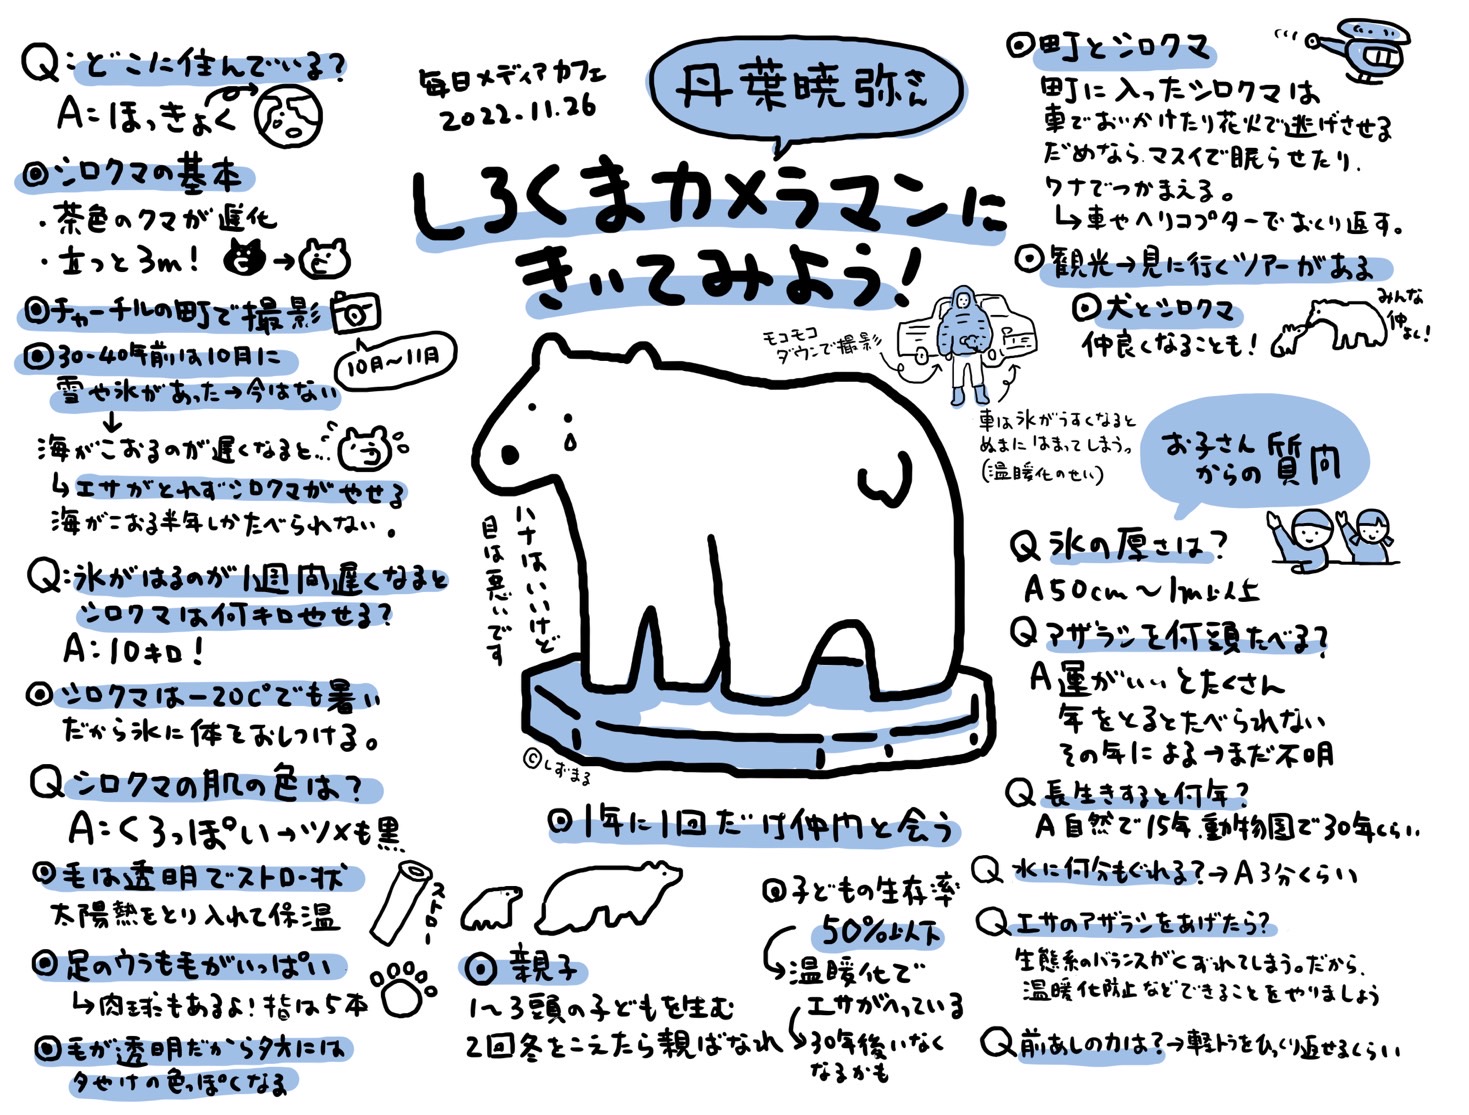 毎日メディアカフェ
2022.11.26
丹葉暁弥さん
しろくまカメラマンに
きいてみよう!
Q:どこに住んでいる?
A:ほっきょく
◎シロクマの基本
・茶色のクマが進化
・立つと3m!
◎チャーチルの町で撮影
10月〜11月
◎30-40年前は10月に
雪や氷があった→今はない
海がこおるのが遅くなると…
↳エサがとれずシロクマがやせる
海がこおる半年しかたべられない。
Q:氷がはるのが1週間遅くなると
シロクマは何キロやせる?
A:10キロ!
◎シロクマは-20C°でも暑い
だから氷に体をおしつける。
Q シロクマの肌の色は?
A:くろっぽい→ツメも黒
◎毛は透明でストロー状
太陽熱をとり入れて保温
ストロー
◎足のウラも毛がいっぱい
↳肉球もあるよ!指は5本
◎毛が透明だから夕方には
夕やけの色っぽくなる
モコモコ
ダウンで撮影
車は氷がうすくなると
ぬまにはまってしまう。
(温暖化のせい)
ハナはいいけど
目は悪いです
©しずまる
◎1年に1回だけ仲間と会う
◎親子
1〜3頭の子どもを生む
2回冬をこえたら親ばなれ
◎子どもの生存率
50%以下
温暖化で
エサがへっている
30年後いなく
なるかも
◎町とシロクマ
町に入ったシロクマは
車でおいかけたり花火で逃げさせる
だめなら、マスイで眠らせたり、
ワナでつかまえる。
↳車やヘリコプターでおくり返す。
◎観光→見に行くツアーがある
◎犬とシロクマ
仲良くなることも!
みんな
仲
よし!
お子さん
からの質問
Q 氷の厚さは?
A 50cm〜1m以上
Q アザラシを何頭たべる?
A 運がいいとたくさん
年をとるとたべられない
その年による→まだ不明
Q 長生きすると何年?
A 自然で15年、動物園で30年くらい
Q 水に何分もぐれる?→A 3分くらい
Q エサのアザラシをあげたら?
生態系のバランスがくずれてしまう。だから、
温暖化防止などできることをやりましょう
Q 前あしの力は?→軽トラをひっくり返せるくらい